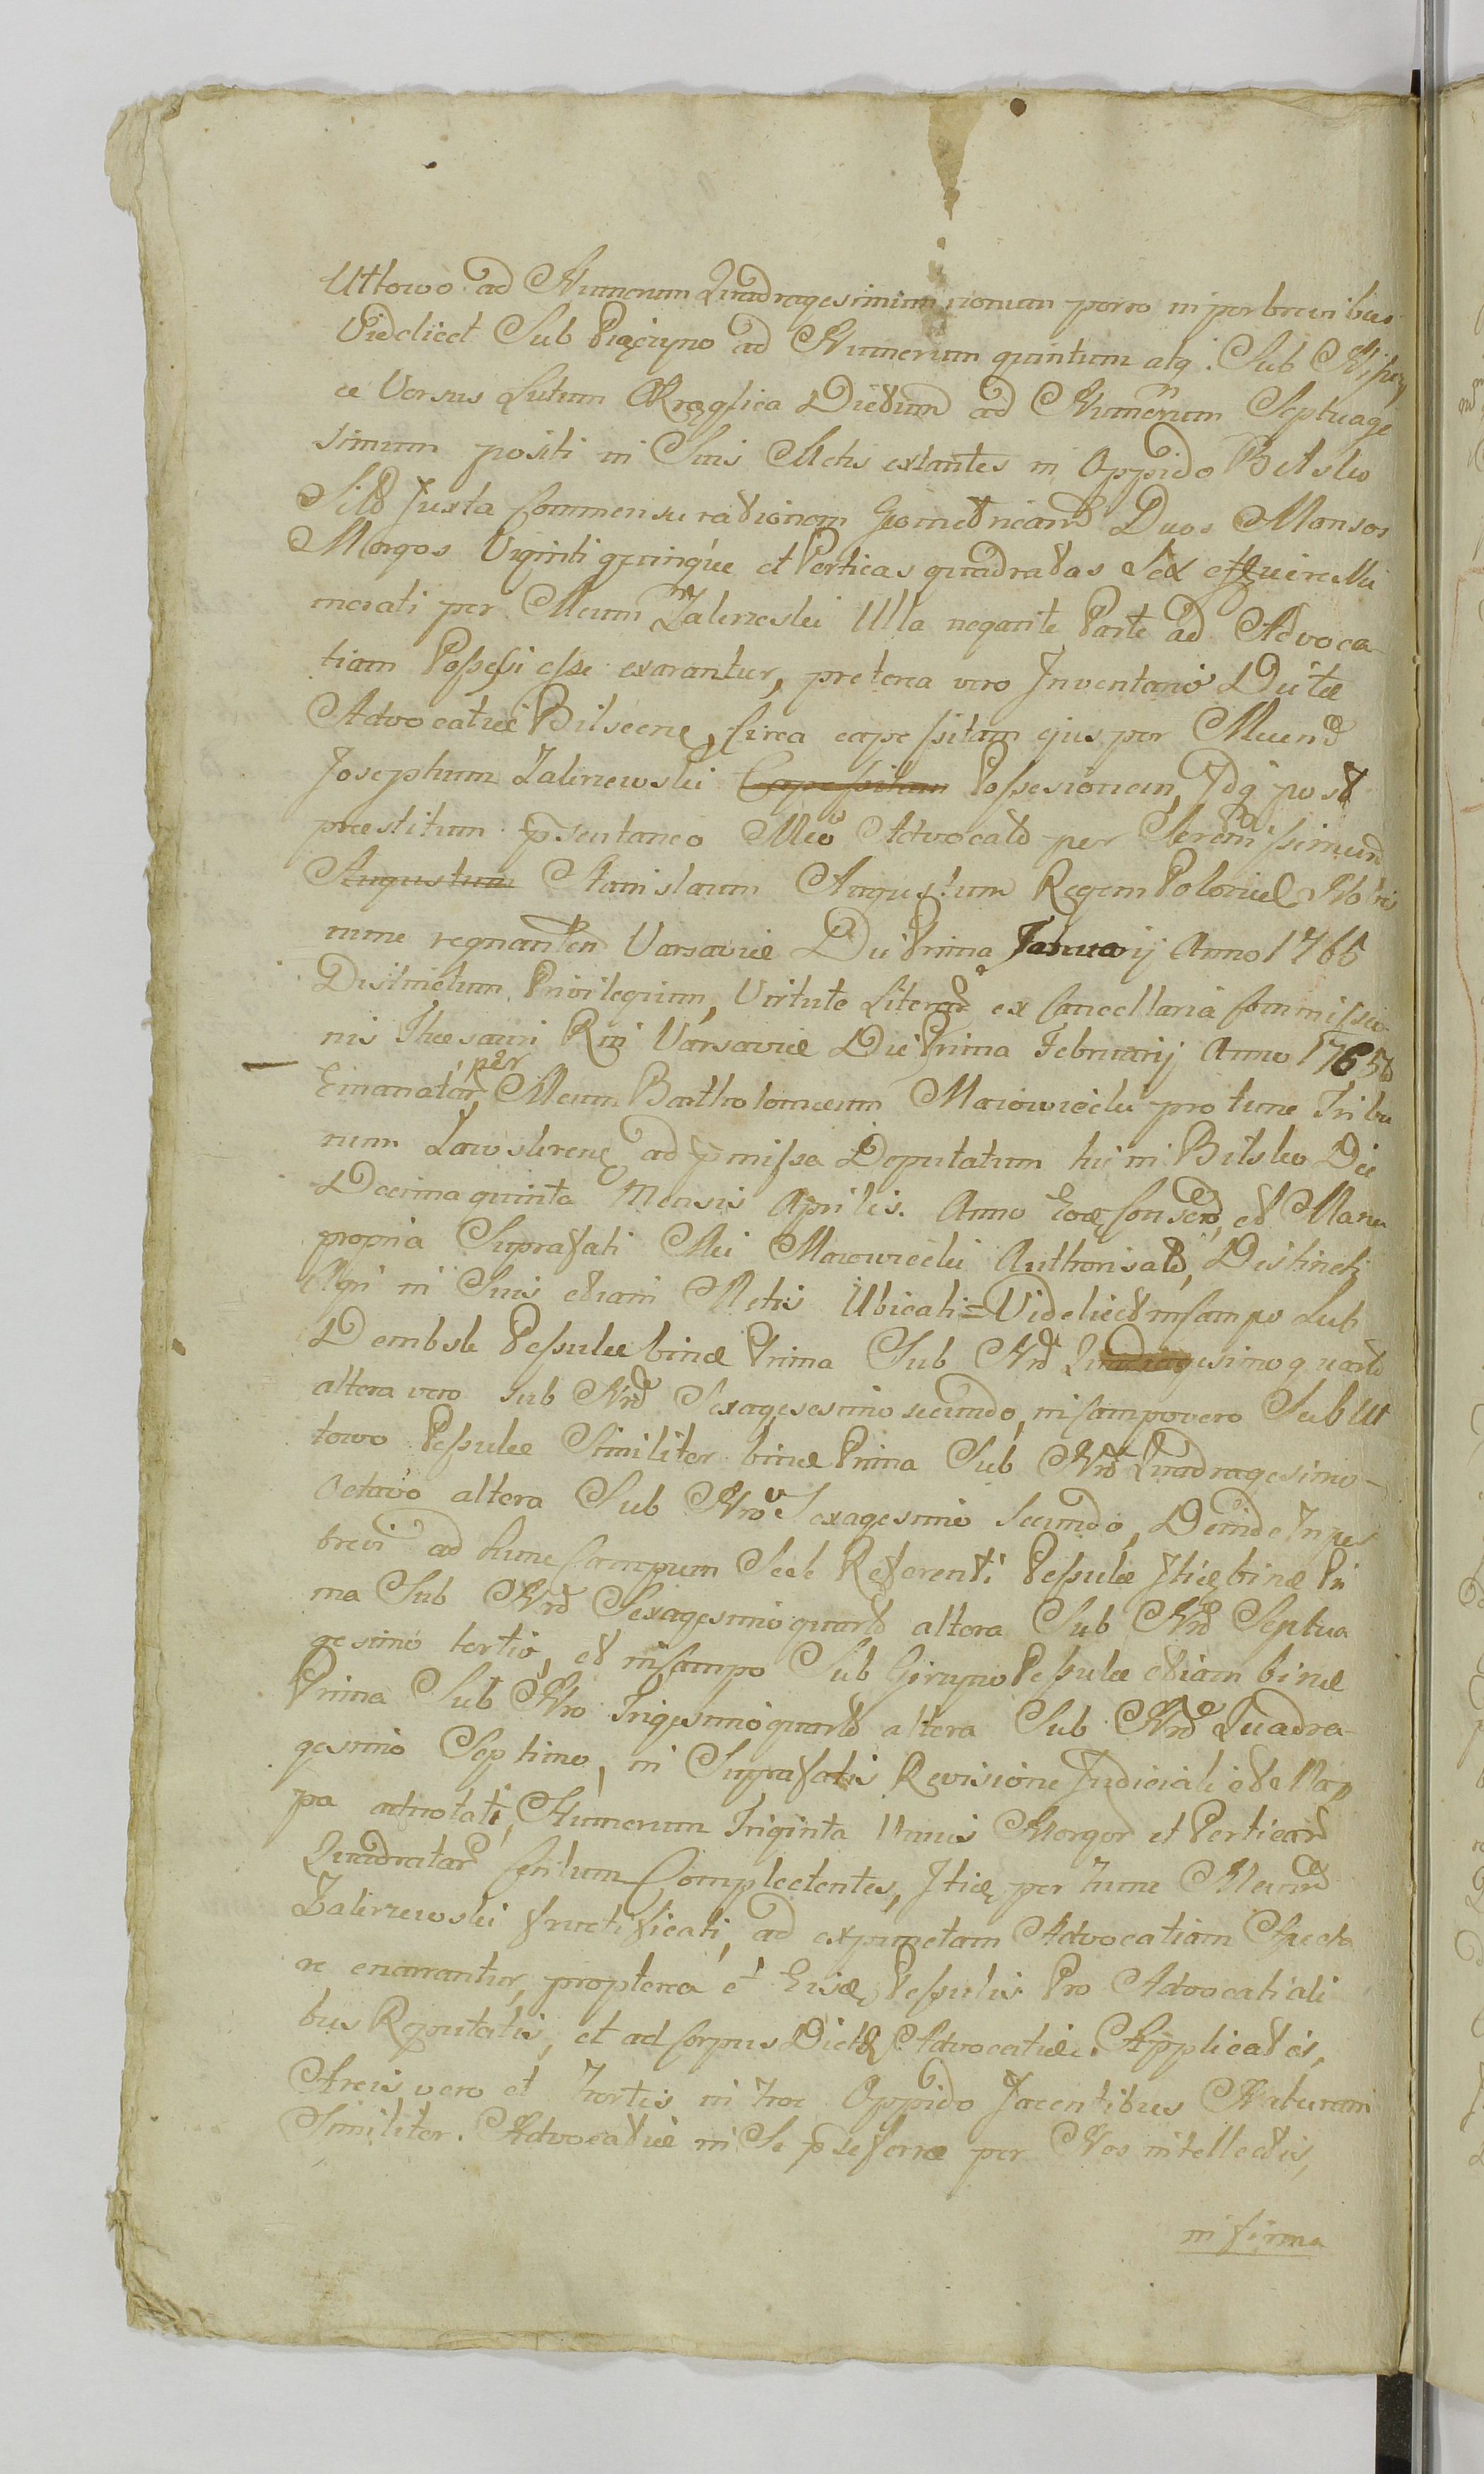 Uttowo ad Numerum Quadragesimum nonum porro in perbrevibus
Videlicet Sub Piaszczyno ad Numerum quintum atq. Sub
ce Versus Lutum Okręglica Dictum ad Numerum Septuage
simum positi in Suis Metis extantes in Oppido Bilsko
Siti Juxta Commensurationem Geometricam Duos Mansos
Morgos Viginti quinque et Perticas quadratas Sex
merati per Meum Zalirzeski Ulla negante Parte ad Advoca
tiam Possessi esse exarantur, preterea vero Inventario Dictæ
Advocatiæ Bilscens, Circa capessitam ejus per Meum
Josephum Zalirzewski Capessitam Possesionem, Idq post
præstitum p̄sentaneo Mco Advocato per Serenissimum
Augustum Stanislaum Augustum Regem Poloniæ Nobis
nunc regnantem Varsaviæ Die Prima Januarij Anno 1765
Distinctum Privilegium, Virtute Literar ex Cancellaria Commissio
nis Thesauri Rni Varsaviæ Die Prima Februarij Anno 1765to
Emanatar per Mcum Bartholomæum Mazowiecki pro tunc Tribu
num ad p̄missa Deputatum hic in Bilsko Die
Decima quinta Mensis Aprilis. Anno Eoq Conscto, et Manu
propria Suprafati Mci Mazowiecki Authorisato, Distincti
Agri in Suis etiam Metis Ubicati = Videlicet in Campo Sub
Dembsk Pessulæ binæ Prima Sub Nro Quadragesimo quarto
altera vero sub Nro Sexagesesimo secundo, in Campo vero Sub Ut
towo Pessulæ Similiter binæ Prima Sub Nro Quadragesimo-
Octavo altera Sub Nro Sexagesimo Secundo, Deinde In per
brevi ad hunc Campum Sese Referenti Pessulæ Iticq binæ Pri
ma Sub Nro Sexagesimo quarto altera Sub Nro Septua
gesimo tertio, et in Campo Sub Pessulæ etiam binæ
Prima Sub Nro Trigesimo quarto altera Sub Nro Quadra-
gesimo Septimo, in Suprafatis Revisione Judiciali et Map
pa adnotati, Numerum Triginta Unius Morgor et Perticar
Quadratar Centum Complectentes, Iticq per hunc Mcum
Zalirzewski fructificati, ad expunctam Advocatiam Specta
re enarrantur, propterea et Eisd Pessulis Pro Advocatiali
bus Reputatis, et ad Corpus Dictæ Advocatiæ Applicatis,
Areis vero et Hortis in hoc Oppido Jacentibus Naturam
Similiter. Advocatiæ in Se p̄seferre per Nos intellectis,
in firma